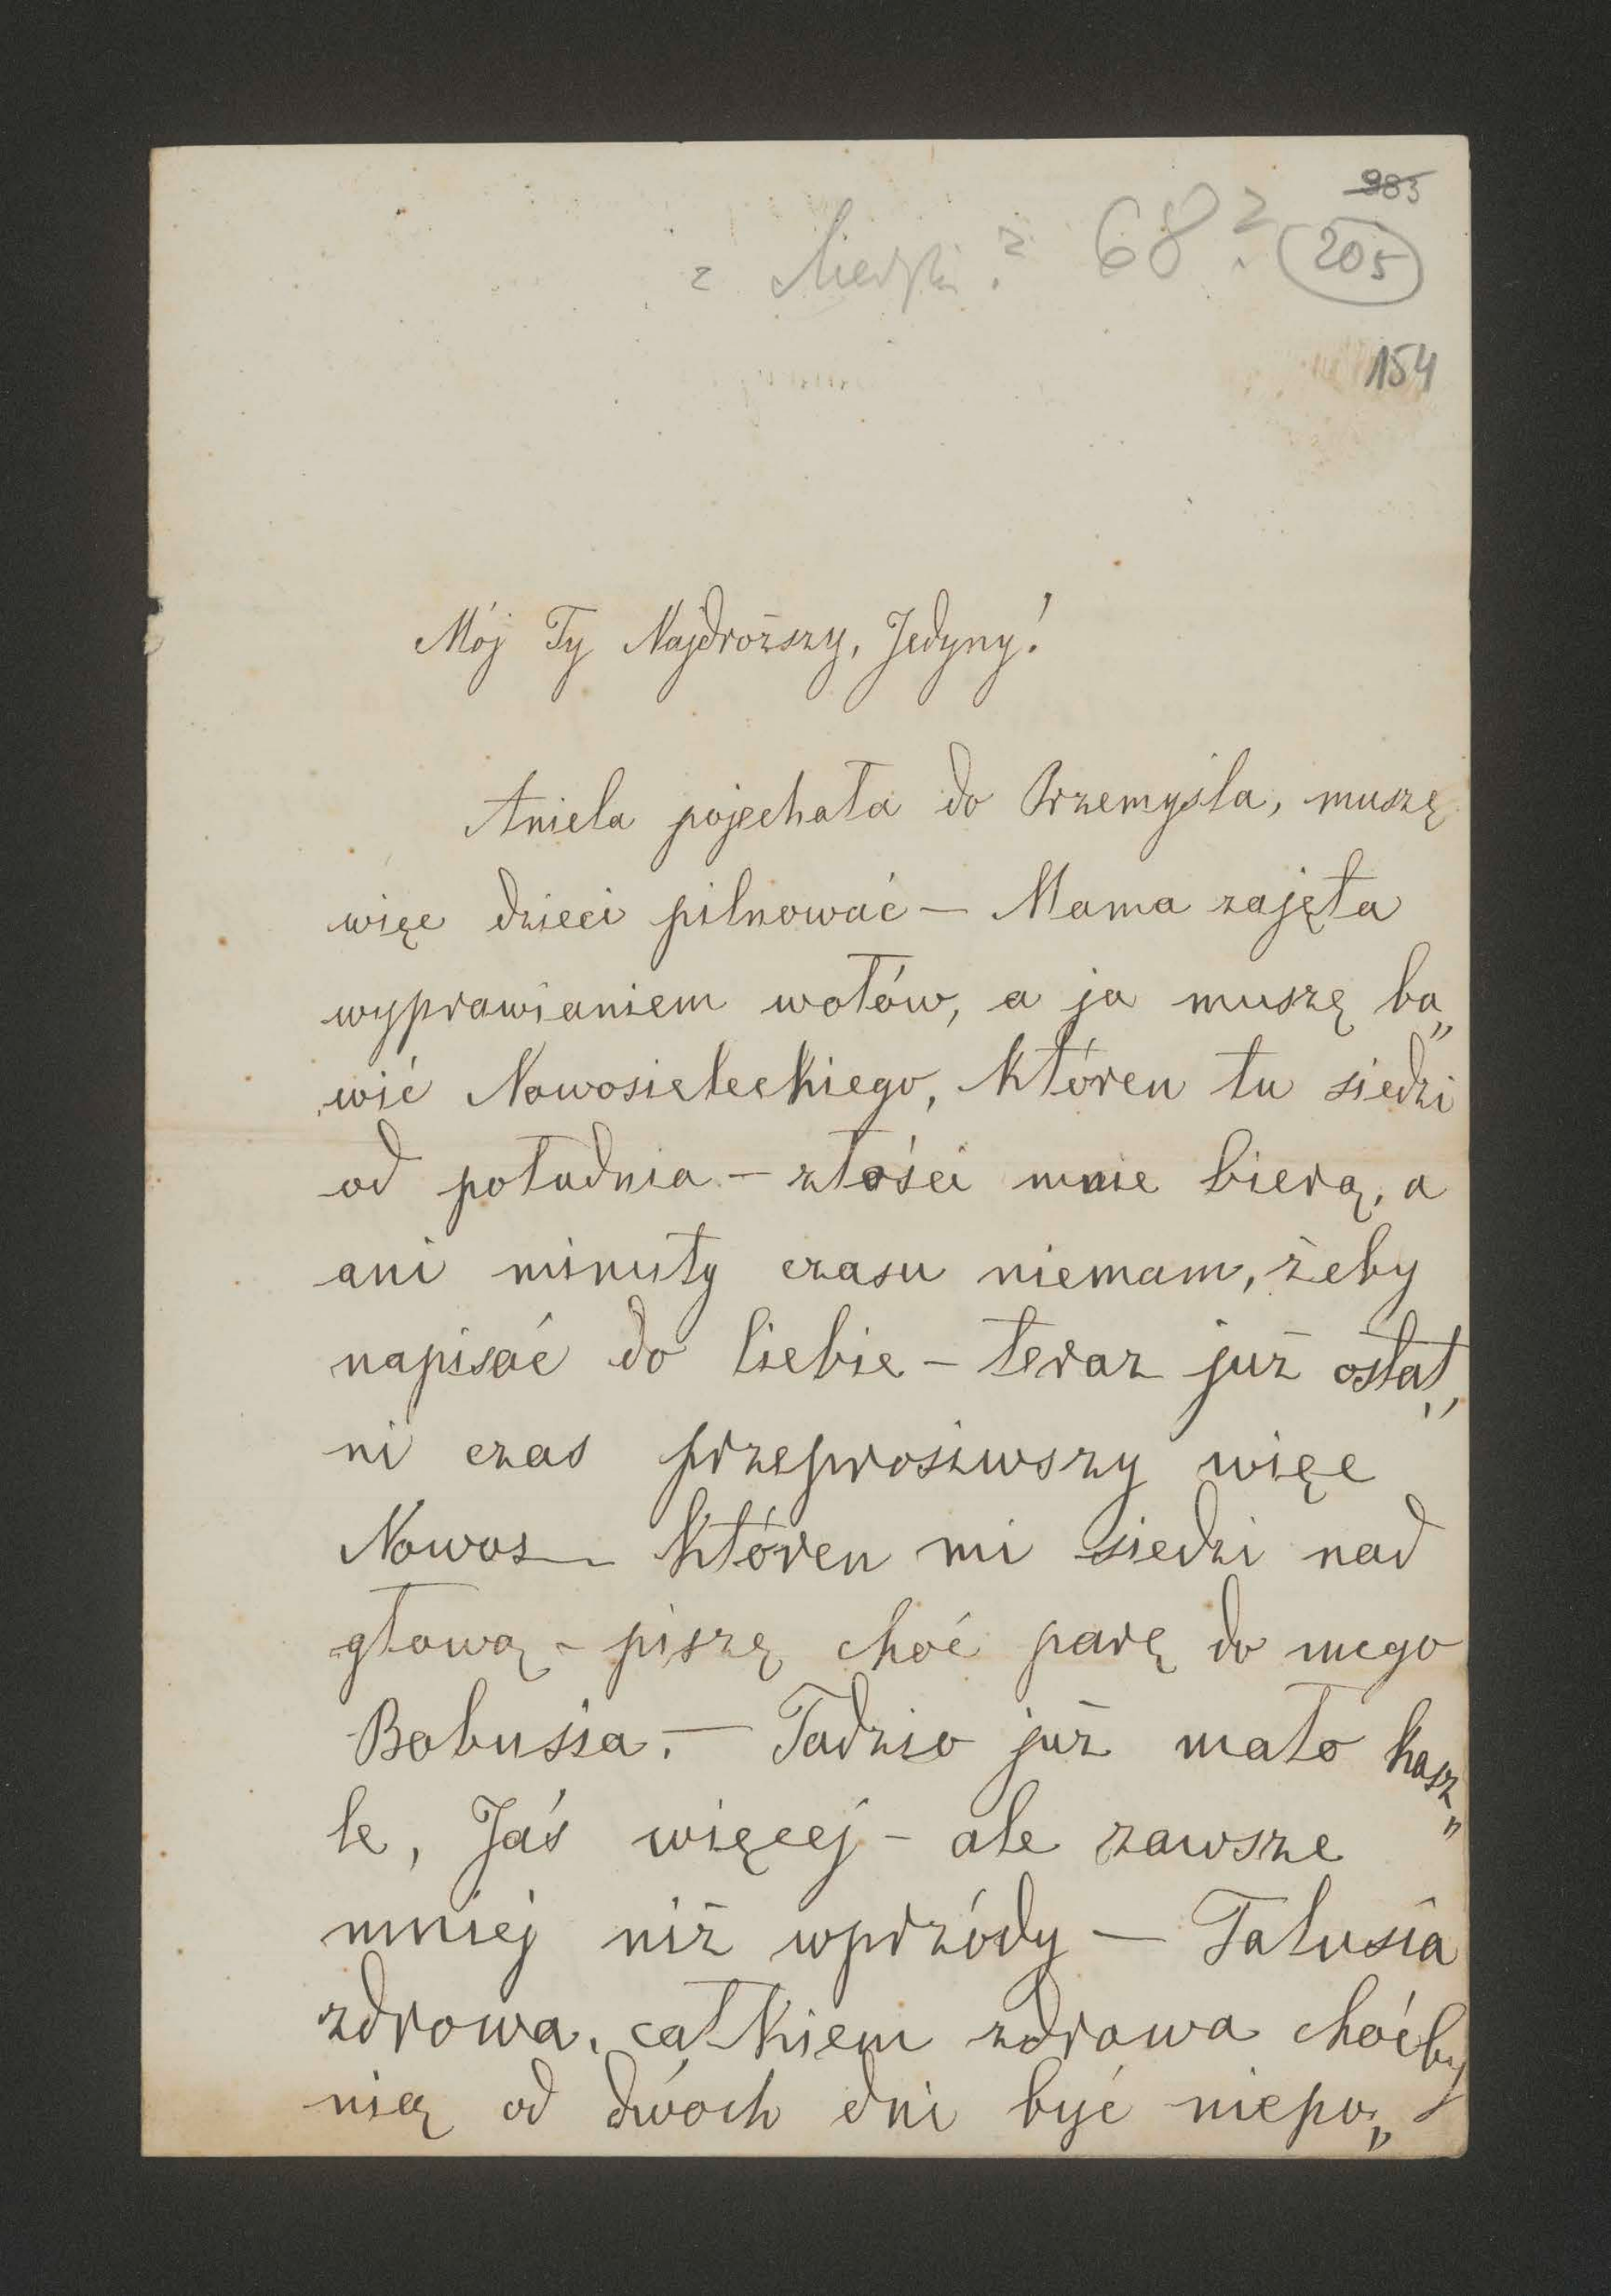 985
z Siedlisk? 68?
205
154
Mój Ty Najdroższy, Jedyny!
Aniela pojechała do Przemyśla, muszę
więc dzieci pilnować — Mama zajęta
wyprawianiem wołów, a ja muszę ba„
wić Nowosieleckiego, któren tu siedzi
od południa — złości mnie bierą, a
ani minuty czasu niemam, żeby
napisać do Ciebie — teraz już ostat„
ni czas przeprosiwszy więc
Nowos— któren mi siedzi nad
głową — piszę choć parę do mego
Bobusia. — Tadzio już mało kasz„
le, Jaś więcej — ale zawsze
mniej niż wprzódy — Talusia
zdrowa, całkiem zdrowa choćby
nią od dwóch dni być niepo„